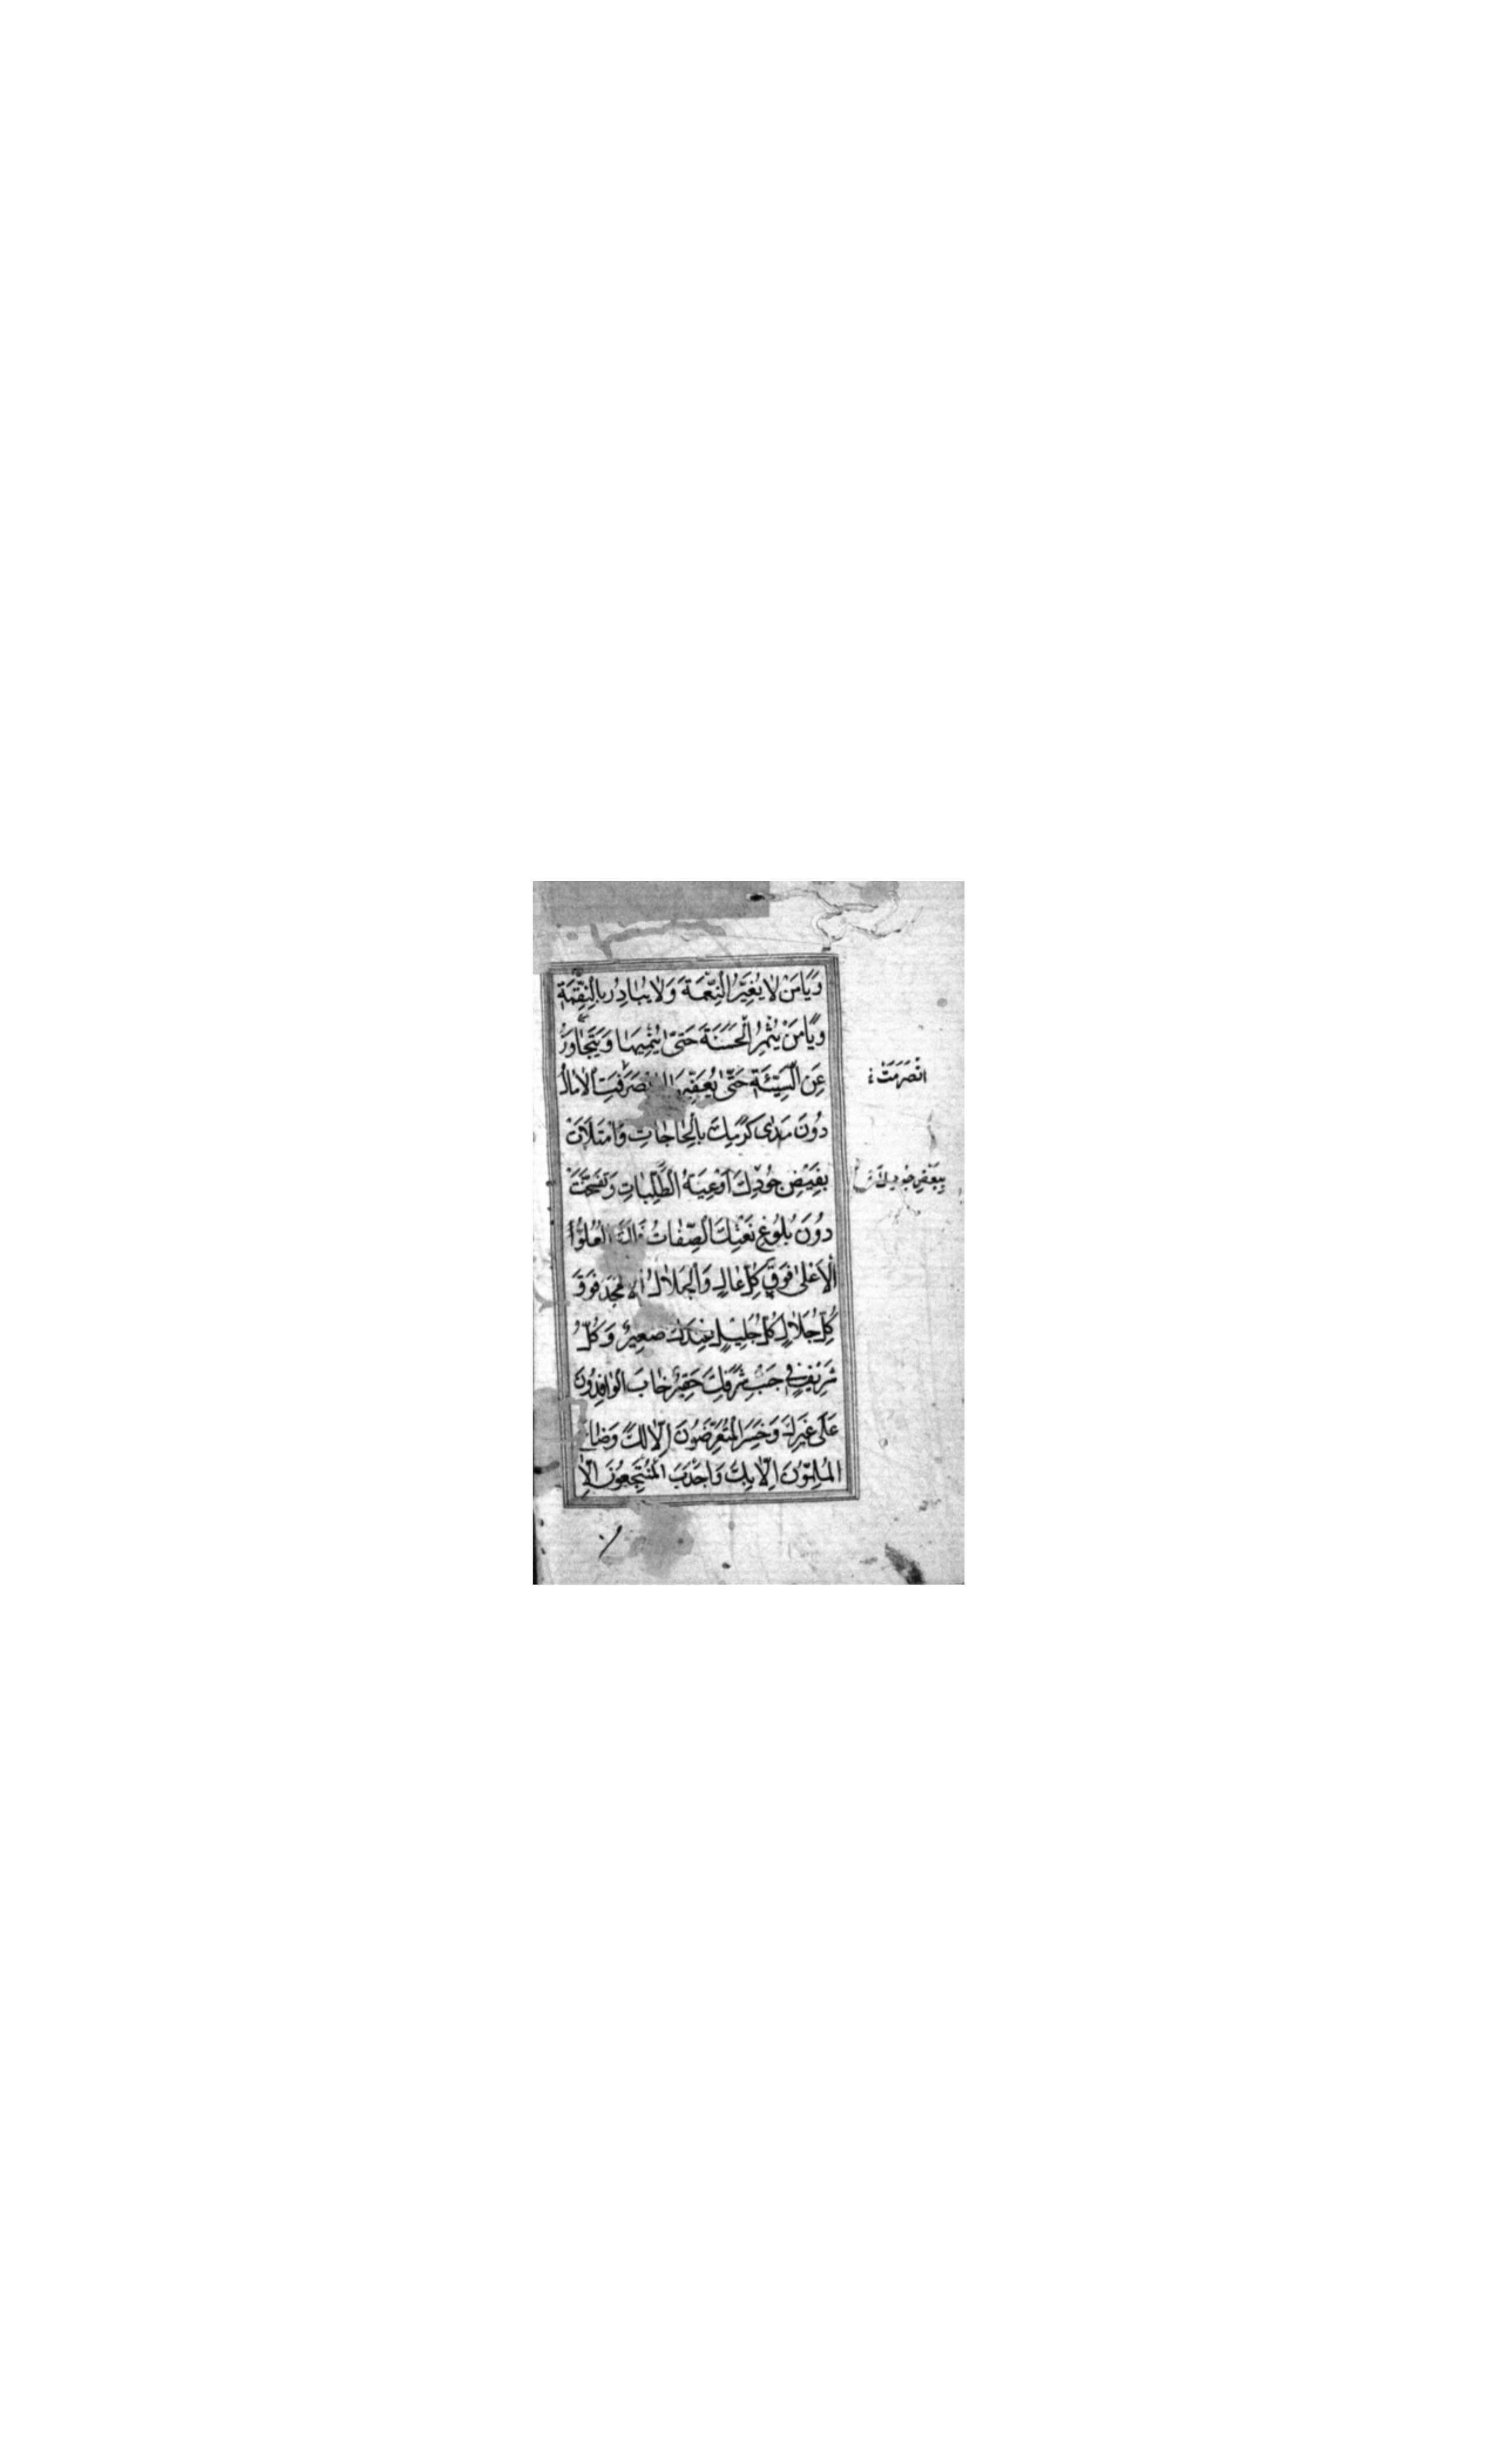 وَيَا مَنْ لَا يُغَيِّرُ النِّعْمَةَ وَلَا يُبَادِرُ بِالنِّقِمَةِ
وَيَا مَنْ يُثْمِرُ الْحَسَنَةَ حَتَّى يُنْمِيَهَا وَيَتَجَاوَزُ
عَنِ السَّيِّئَةِ حَتَّى يُعَفِّيَهَا انْصَرَفَتِ الْآمَالُ
دُونَ مَدَى كَرَمِكَ بِالْحَاجَاتِ وَامْتَلَأَتْ
بِفَيْضِ جُودِكَ أَوْعِيَةُ الطَّلِبَاتِ وَتَفَسَّخَتْ
دُونَ بُلُوغِ نَعْتِكَ الصِّفَاتُ فَلَكَ الْعُلُوُّ
الْأَعْلَى فَوْقَ كُلِّ عَالٍ وَالْجَلَالُ الْأَمْجَدُ فَوْقَ
كُلِّ جَلَالٍ كُلُّ جَلِيلٍ عِنْدَكَ صَغِيرٌ وَكُلُّ
شَرِيفٍ فِي جَنْبِ شَرَفِكَ حَقِيرٌ خَابَ الْوَافِدُونَ
عَلَى غَيْرِكَ وَخَسِرَ الْمُتَعَرِّضُونَ إِلَّا لَكَ وَضَاعَ
الْمُلِمُّونَ إِلَّا بِكَ وَأَجْدَبَ الْمُنْتَجِعُونَ إِلَّا
انْصَرَمَتْ
بِبَعْضِ جُودِكَ